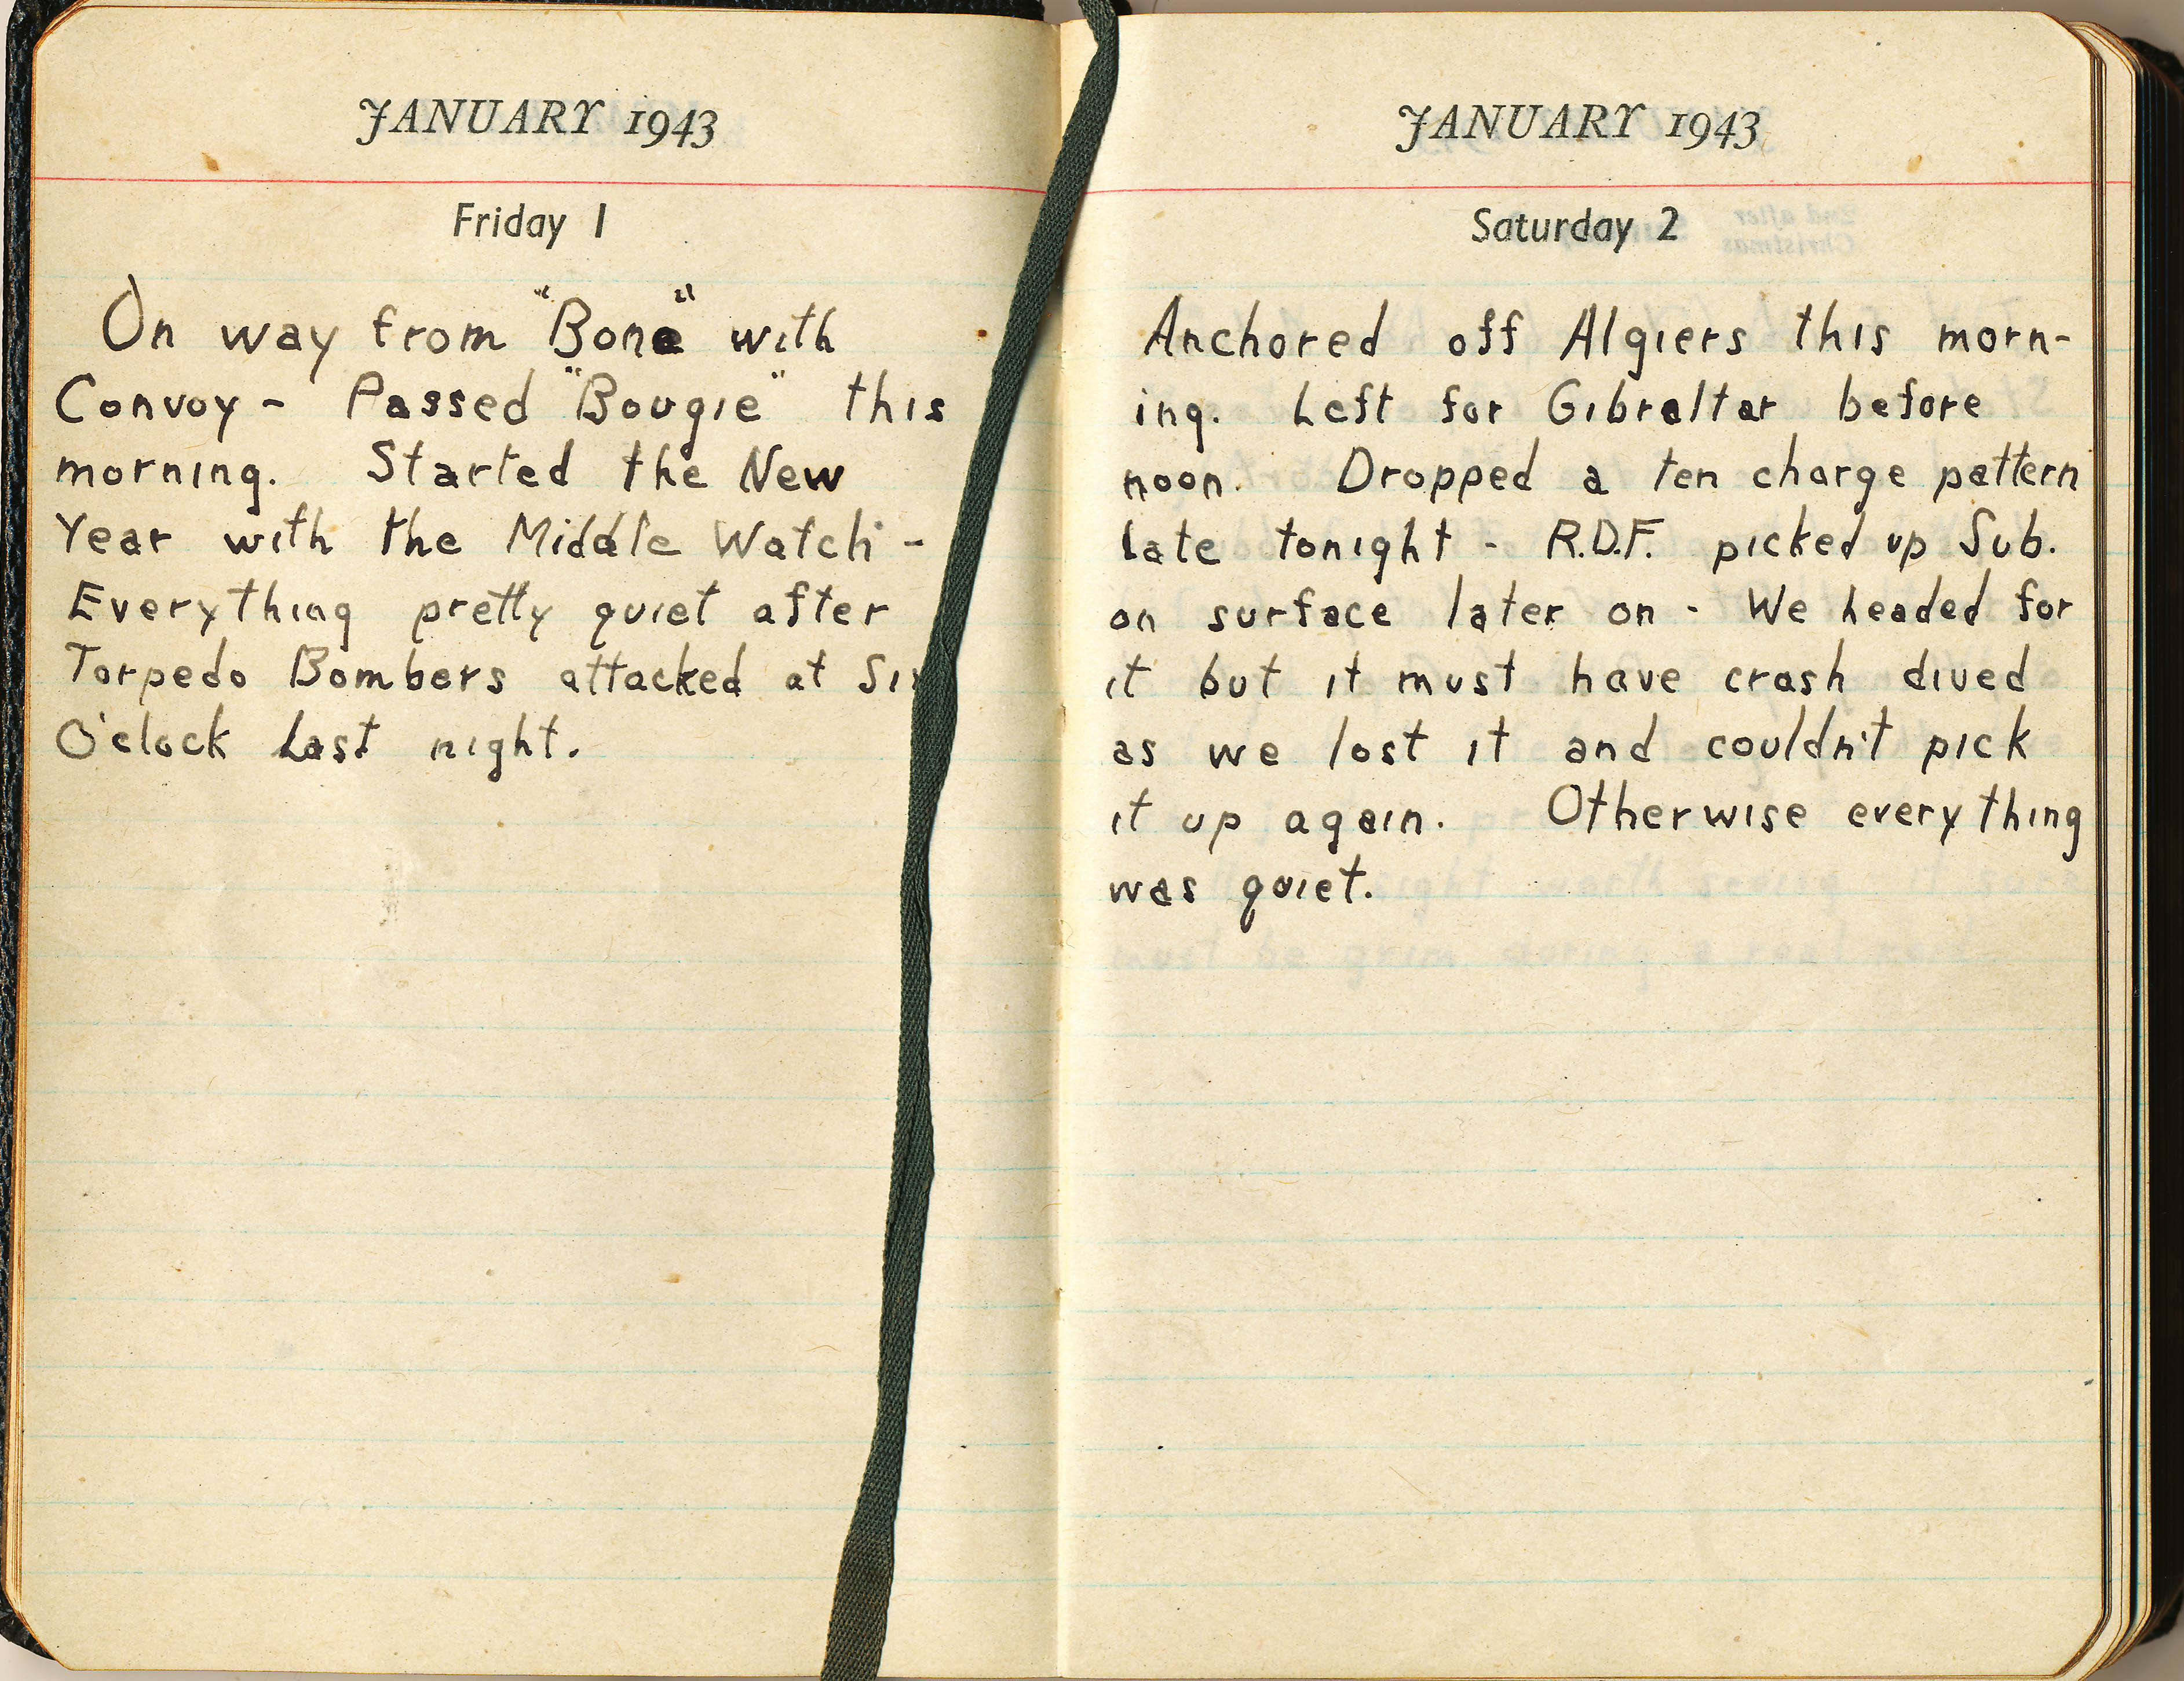 JANUARY 1943
Friday 1
On way from "Bone" with
Convoy - Passed "Bougie" this
morning. Started the New
Year with the Middle Watch -
Everything pretty quiet after
Torpedo Bombers attacked at
O'clock Last night.
JANUARY 1943
Saturday 2
Anchored off Algiers this morn-
ing. Left for Gibraltar before
noon. Dropped a ten charge pattern
late tonight - R.D.F. picked up Sub.
on surface later on - We headed for
it but it must have crash dived
as we lost it and couldn't pick
it up again. Otherwise everything
was quiet.